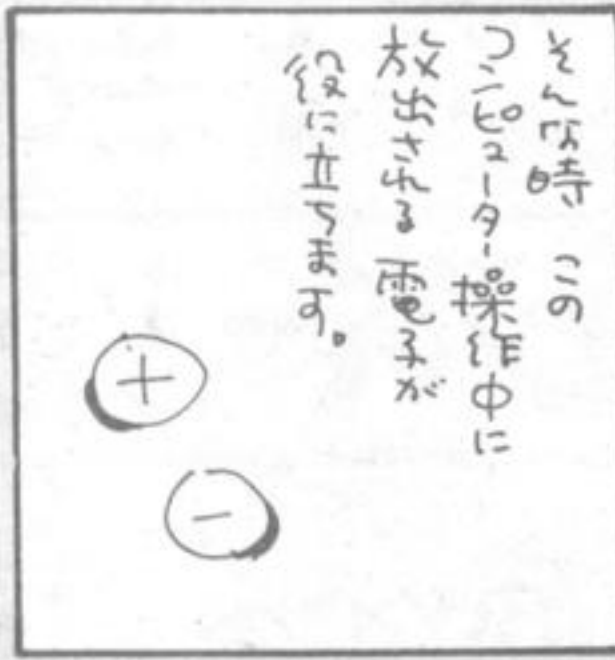 そんな時 この
コンピューター操作中に
放出される 電子が
役に立ちます。
+
-